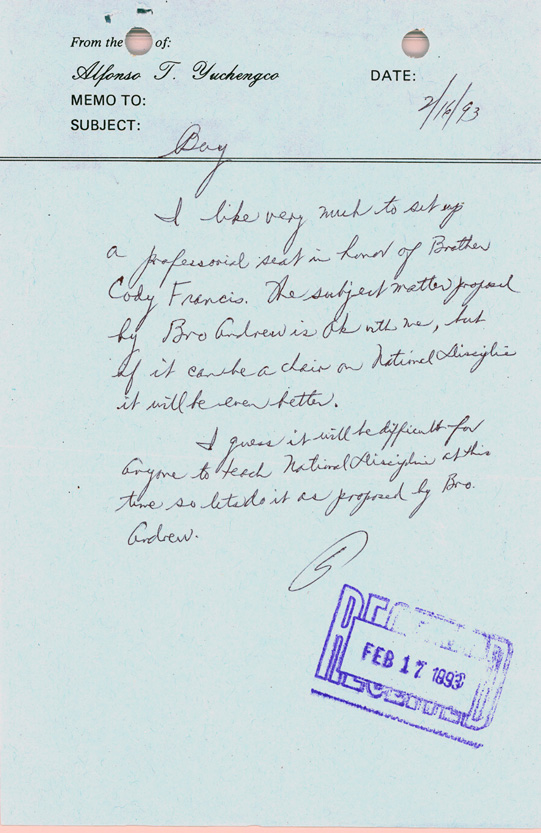 From the of:
Alfonso T. Yuchengco
DATE:
MEMO TO:
2/16/93
SUBJECT:
I like very much to set up
a professorial seat in honor of Brother
Cody Francis. The subject matter proposed
by Bro Andrew is Ok with me, but
if it can be a chair on National Discipline
it will be even better.
I guess it will be difficult for
anyone to teach National Discipline at this
time so lets do it as proposed by Bro.
Andrew.
FEB 17 1993
RECEIVED